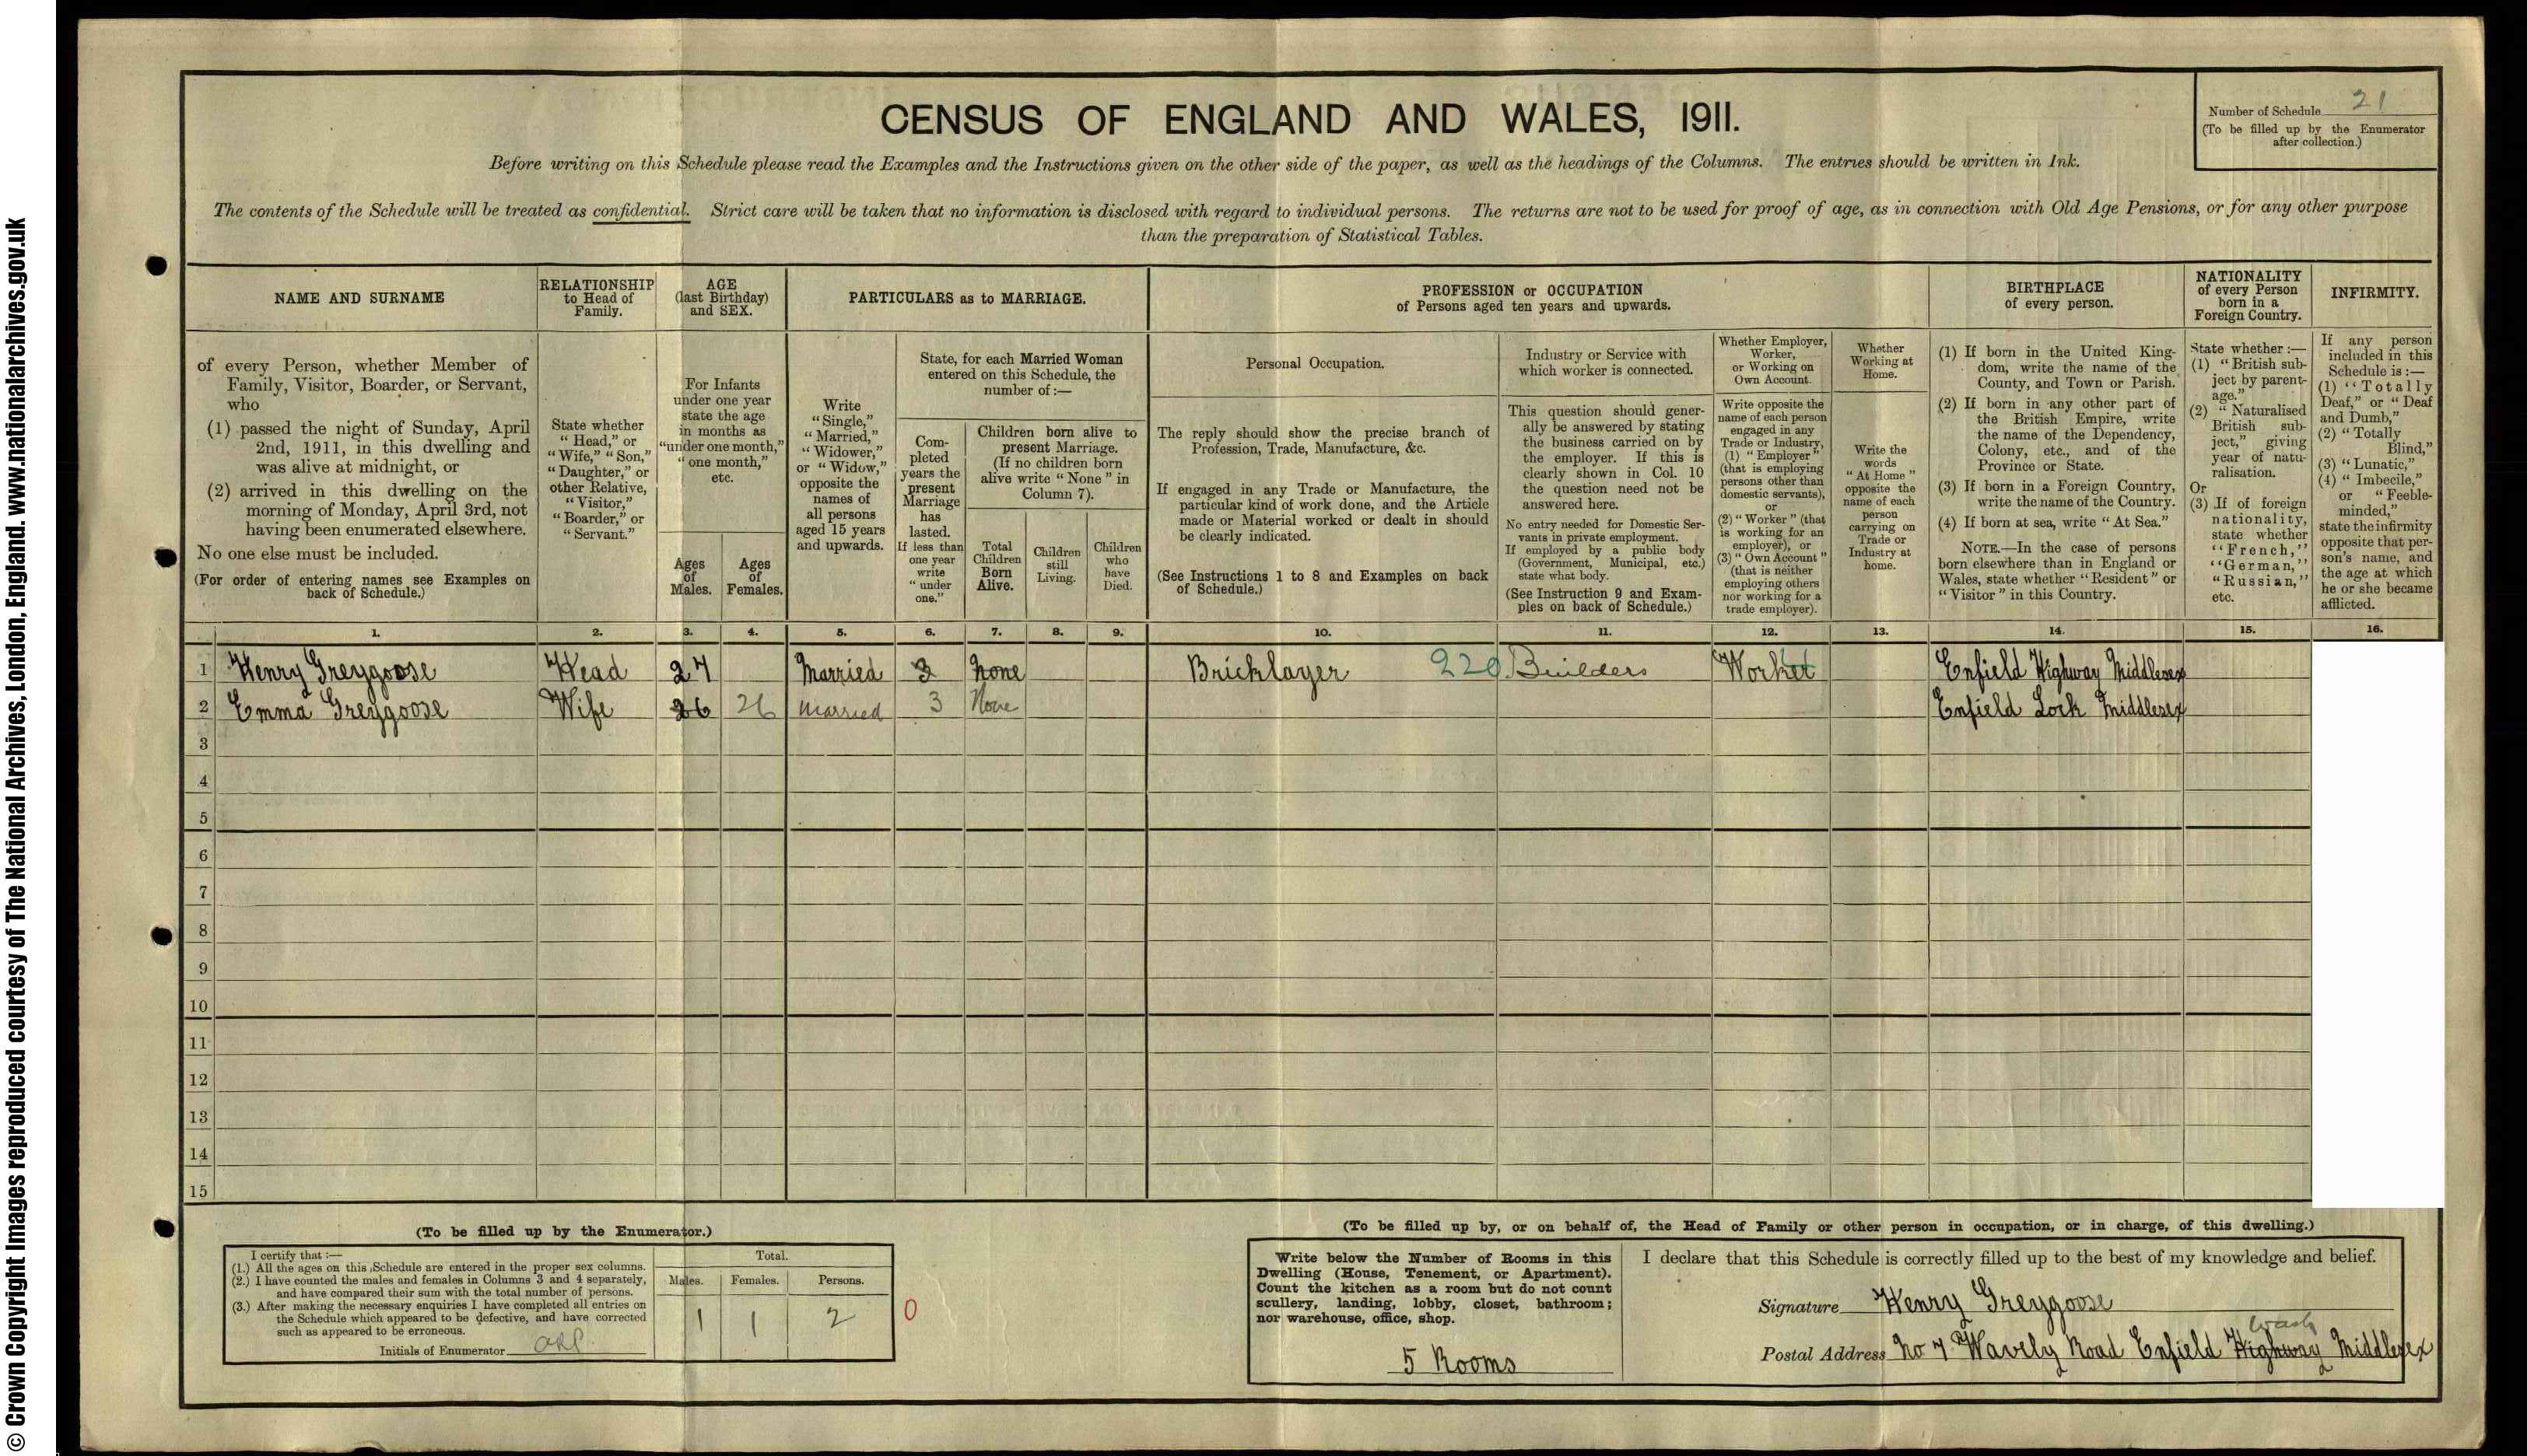 © Crown Copyright Images reproduced courtesy of The National Archives, London, England. www.nationalarchives.gov.uk
CENSUS OF ENGLAND AND WALES, 1911.
Number of Schedule 21
(To be filled up by the Enumerator
after collection.)
Before writing on this Schedule please read the Examples and the Instructions given on the other side of the paper, as well as the headings of the Columns. The entries should be written in Ink.
The contents of the Schedule will be treated as confidential. Strict care will be taken that no information is disclosed with regard to individual persons. The returns are not to be used for proof of age, as in connection with Old Age Pensions, or for any other purpose
than the preparation of Statistical Tables.
NAME AND SURNAME
of every Person, whether Member of
Family, Visitor, Boarder, or Servant,
who
(1) passed the night of Sunday, April
2nd, 1911, in this dwelling and
was alive at midnight, or
(2) arrived in this dwelling on the
morning of Monday, April 3rd, not
having been enumerated elsewhere.
No one else must be included.
(For order of entering names see Examples on
back of Schedule.)
RELATIONSHIP
to Head of
Family.
State whether
"Head," or
"Wife," "Son,"
"Daughter," or
other Relative,
"Visitor,"
"Boarder," or
"Servant."
AGE
(last Birthday)
and SEX.
For Infants
under one year
state the age
in months as
"under one month,"
"one month,"
etc.
Ages
of
Males.
Ages
of
Females.
PARTICULARS as to MARRIAGE.
Write
"Single,"
"Married,"
"Widower,"
or "Widow,"
opposite the
names of
all persons
aged 15 years
and upwards.
State, for each Married Woman
entered on this Schedule, the
number of:—
Com-
pleted
years the
present
Marriage
has
lasted.
If less than
one year
write
"under
one."
Children born alive to
present Marriage.
(If no children born
alive write "None" in
Column 7).
Total
Children
Born
Alive.
Children
still
Living.
Children
who
have
Died.
PROFESSION or OCCUPATION
of Persons aged ten years and upwards.
Personal Occupation.
The reply should show the precise branch of
Profession, Trade, Manufacture, &c.
If engaged in any Trade or Manufacture, the
particular kind of work done, and the Article
made or Material worked or dealt in should
be clearly indicated.
(See Instructions 1 to 8 and Examples on back
of Schedule.)
Industry or Service with
which worker is connected.
This question should gener-
ally be answered by stating
the business carried on by
the employer. If this is
clearly shown in Col. 10
the question need not be
answered here.
No entry needed for Domestic Ser-
vants in private employment.
If employed by a public body
(Government, Municipal, etc.)
state what body.
(See Instruction 9 and Exam-
ples on back of Schedule.)
Whether Employer,
Worker,
or Working on
Own Account.
Write opposite the
name of each person
engaged in any
Trade or Industry,
(1) "Employer"
(that is employing
persons other than
domestic servants),
or
(2) "Worker" (that
is working for an
employer), or
(3) "Own Account"
(that is neither
employing others
nor working for a
trade employer).
Whether
Working at
Home.
Write the
words
"At Home"
opposite the
name of each
person
carrying on
Trade or
Industry at
home.
BIRTHPLACE
of every person.
(1) If born in the United King-
dom, write the name of the
County, and Town or Parish.
(2) If born in any other part of
the British Empire, write
the name of the Dependency,
Colony, etc., and of the
Province or State.
(3) If born in a Foreign Country,
write the name of the Country.
(4) If born at sea, write "At Sea."
NOTE.—In the case of persons
born elsewhere than in England or
Wales, state whether "Resident" or
"Visitor" in this Country.
NATIONALITY
of every Person
born in a
Foreign Country.
State whether:—
(1) "British sub-
ject by parent-
age."
(2) "Naturalised
British sub-
ject," giving
year of natu-
ralisation.
Or
(3) If of foreign
nationality,
state whether
"French,"
"German,"
"Russian,"
etc.
INFIRMITY.
If any person
included in this
Schedule is:—
(1) "Totally
Deaf," or "Deaf
and Dumb,"
(2) "Totally
Blind,"
(3) "Lunatic,"
(4) "Imbecile,"
or "Feeble-
minded,"
state the infirmity
opposite that per-
son's name, and
the age at which
he or she became
afflicted.
1. 2. 3. 4. 5. 6. 7. 8. 9. 10. 11. 12. 13. 14. 15. 16.
1 Henry Greygoose Head 27 Married 3 None Bricklayer 220 Builders Worker Enfield Highway Middlesex
2 Emma Greygoose Wife 26 26 Married 3 None Enfield Lock Middlesex
3
4
5
6
7
8
9
10
11
12
13
14
15
(To be filled up by the Enumerator.)
I certify that:—
(1.) All the ages on this Schedule are entered in the proper sex columns.
(2.) I have counted the males and females in Columns 3 and 4 separately,
and have compared their sum with the total number of persons.
(3.) After making the necessary enquiries I have completed all entries on
the Schedule which appeared to be defective, and have corrected
such as appeared to be erroneous.
Initials of Enumerator
Total.
Males. Females. Persons.
1 1 2 0
(To be filled up by, or on behalf of, the Head of Family or other person in occupation, or in charge, of this dwelling.)
Write below the Number of Rooms in this
Dwelling (House, Tenement, or Apartment).
Count the kitchen as a room but do not count
scullery, landing, lobby, closet, bathroom;
nor warehouse, office, shop.
5 Rooms
I declare that this Schedule is correctly filled up to the best of my knowledge and belief.
Signature Henry Greygoose
Wash
Postal Address No 7 Wavely Road Enfield Highway Middlesex